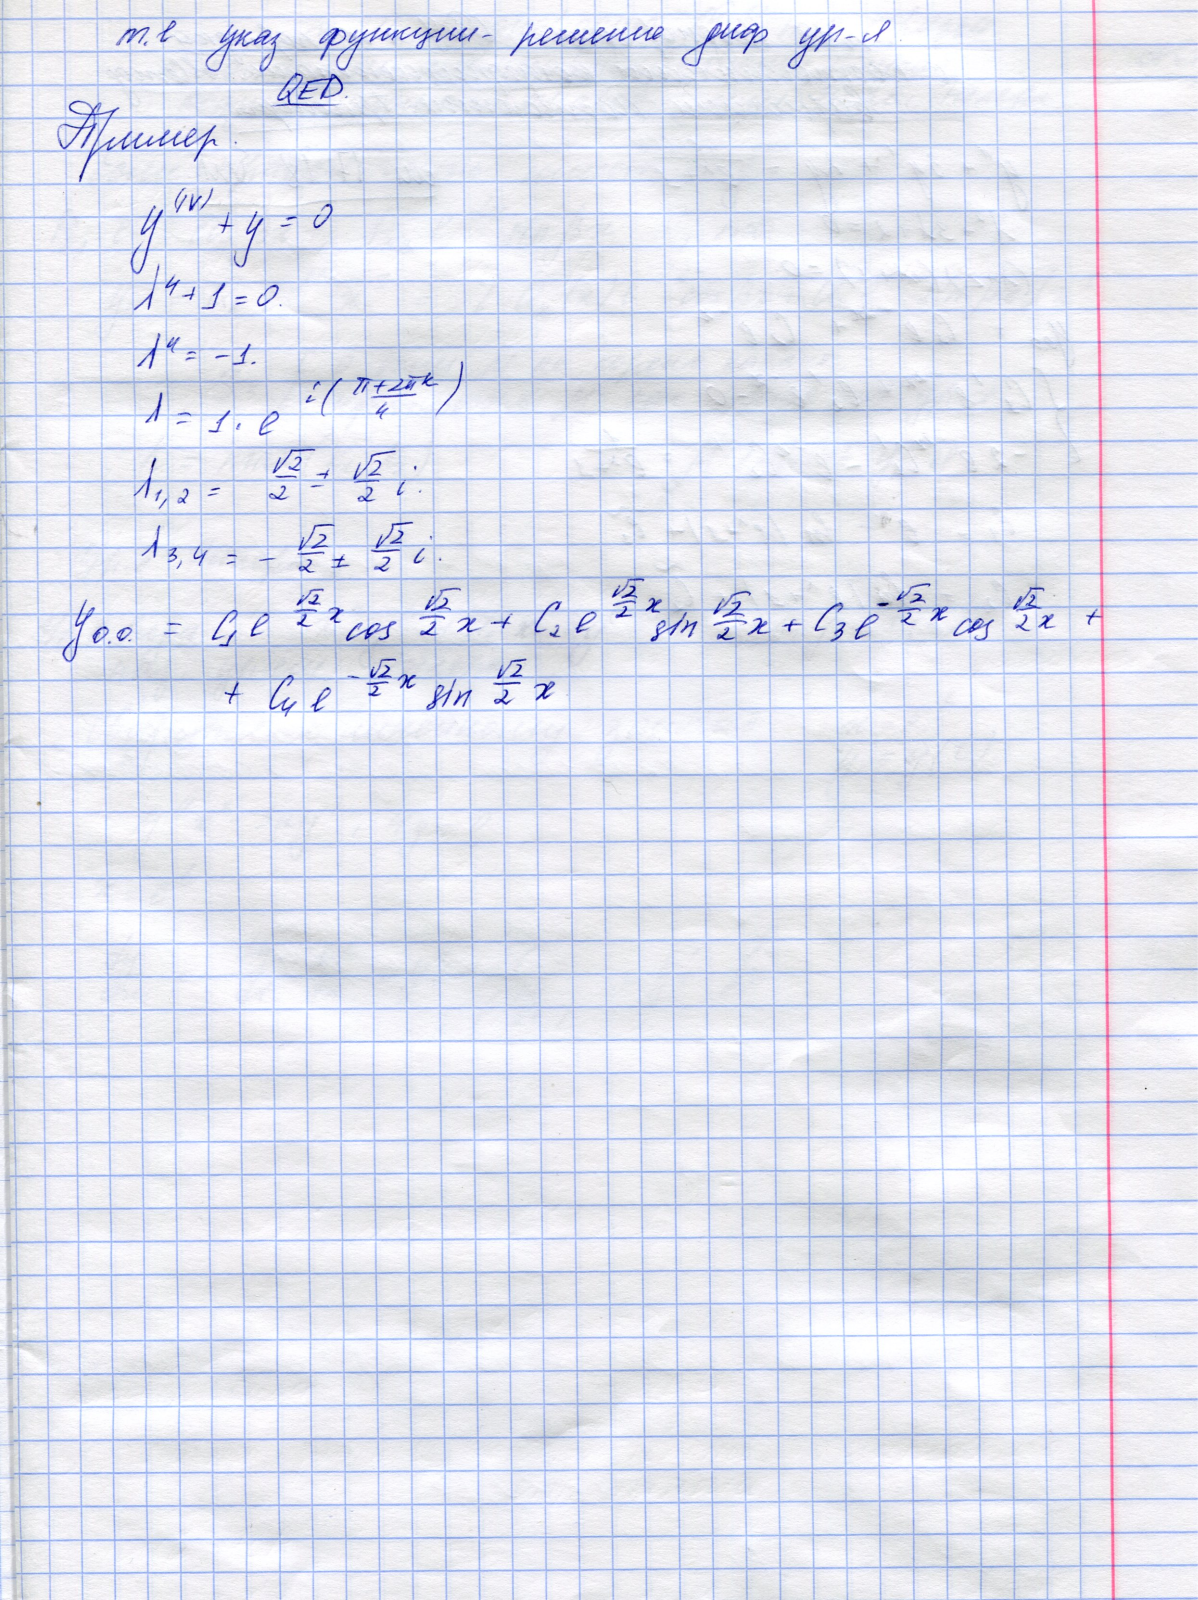 т.е указ функции - решение диф ур-я.
QED.
Пример.
y^(IV) + y = 0
λ^4 + 1 = 0.
λ^4 = -1.
λ = 1 · e^{i((π+2πk)/4)}
λ_{1,2} = √2/2 ± √2/2 i.
λ_{3,4} = - √2/2 ± √2/2 i.
y_{о.о.} = C_1 e^{√2/2 x} cos √2/2 x + C_2 e^{√2/2 x} sin √2/2 x + C_3 e^{-√2/2 x} cos √2/2 x +
+ C_4 e^{-√2/2 x} sin √2/2 x